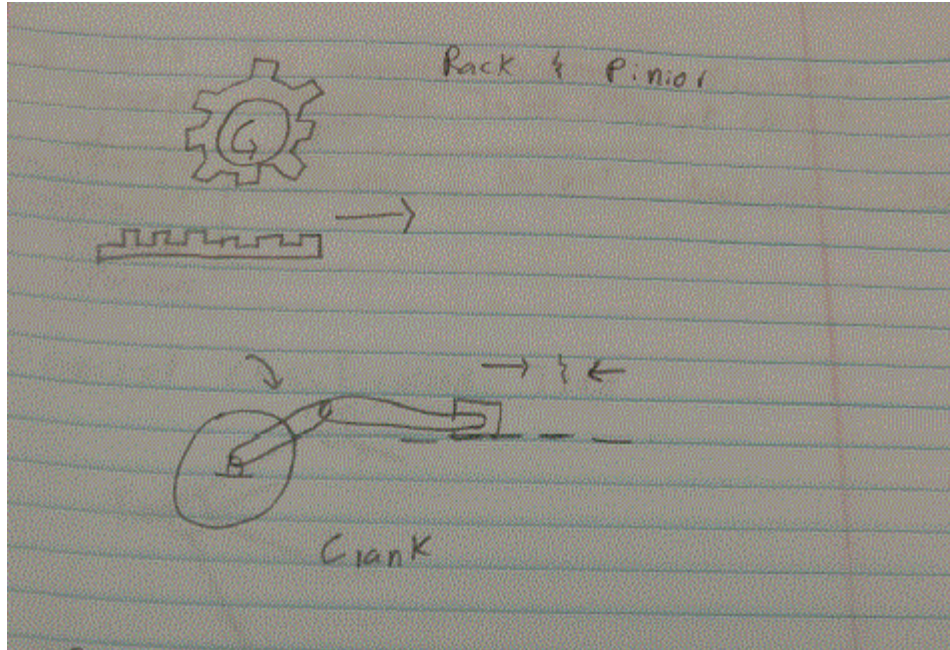 Rack & Pinion
Crank